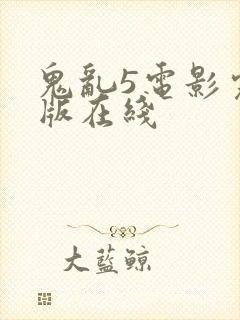 鬼亂5電影完
版在綫
大藍鯨